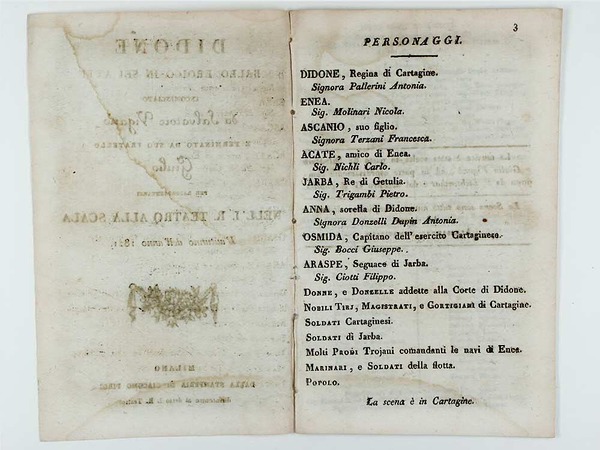 DIDONE
BALLO EROICO IN SEI ATTI
da Salvatore Viganò
E TERMINATO DA SUO FRATELLO
Giulio
NELL'I. R. TEATRO ALLA SCALA
l'autunno dell'anno
MILANO
DALLA STAMPERIA DI GIACOMO PIROLA
3
PERSONAGGI.
DIDONE, Regina di Cartagine.
Signora Pallerini Antonia.
ENEA.
Sig. Molinari Nicola.
ASCANIO, suo figlio.
Signora Terzani Francesca.
ACATE, amico di Enea.
Sig. Nichli Carlo.
JARBA, Re di Getulia.
Sig. Trigambi Pietro.
ANNA, sorella di Didone.
Signora Donzelli Dupin Antonia.
OSMIDA, Capitano dell'esercito Cartaginese.
Sig. Bocci Giuseppe.
ARASPE, Seguace di Jarba.
Sig. Ciotti Filippo.
DONNE, e DONZELLE addette alla Corte di Didone.
NOBILI TIRJ, MAGISTRATI, e CORTIGIANI di Cartagine.
SOLDATI Cartaginesi.
SOLDATI di Jarba.
Molti PRODI Trojani comandanti le navi di Enea.
MARINARI, e SOLDATI della flotta.
POPOLO.
La scena è in Cartagine.